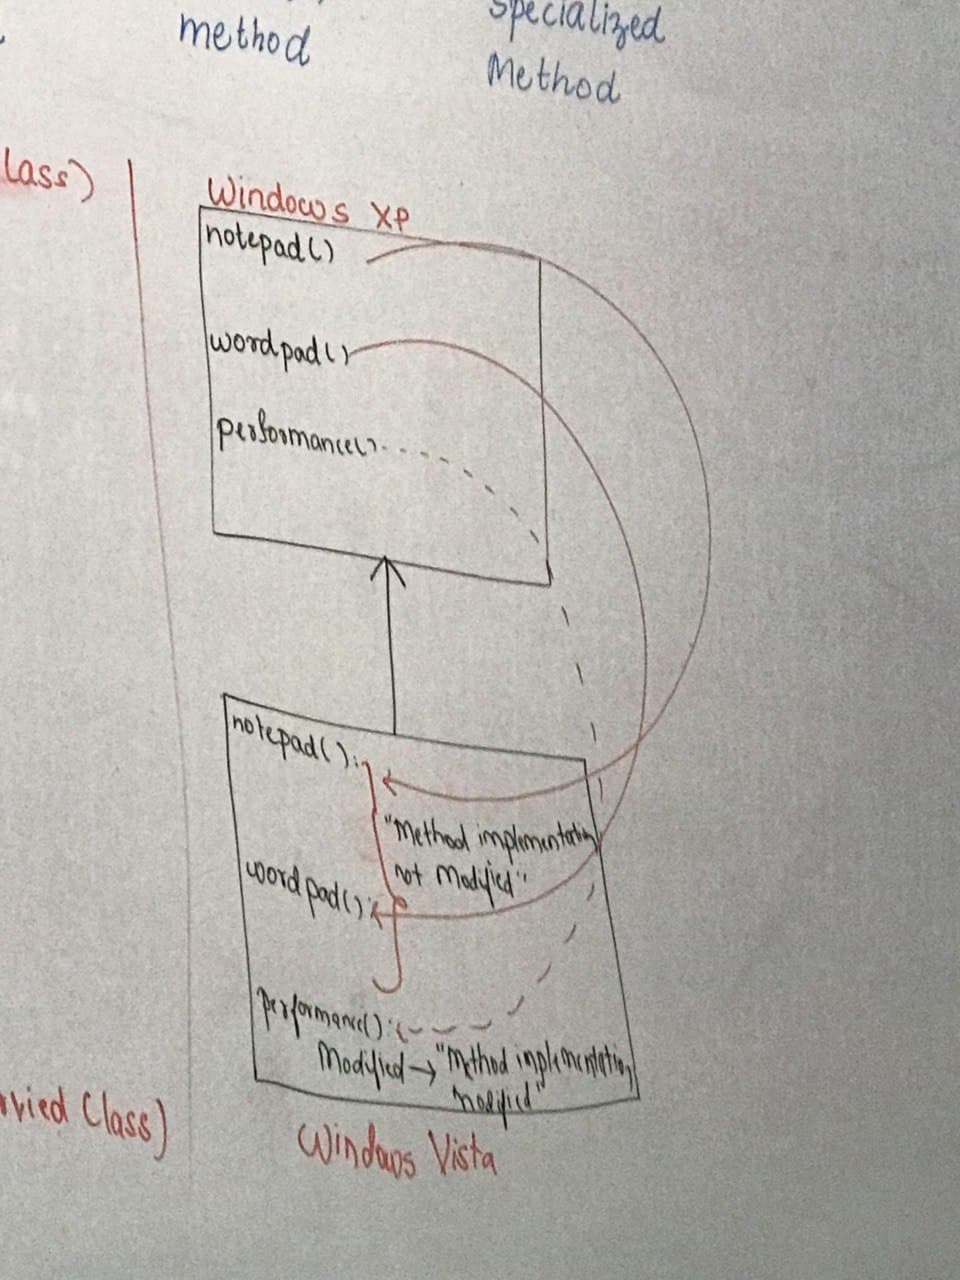 method
specialized
Method
lass)
Windows XP
notepad()
wordpad()
performance()
notepad():
"Method implementation
not Modified"
wordpad():
performance():
Modified → "Method implementation
modified"
rvied Class)
Windows Vista